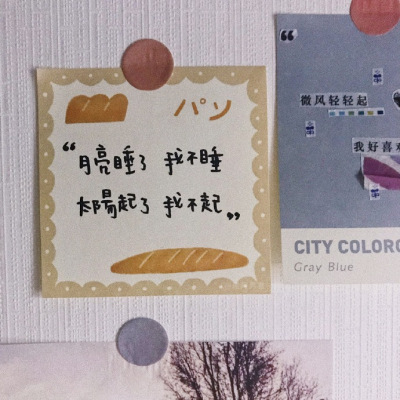 パン
“月亮睡了 我不睡
太陽起了 我不起„
“
微风轻轻起
我好喜欢
CITY COLORO
Gray Blue